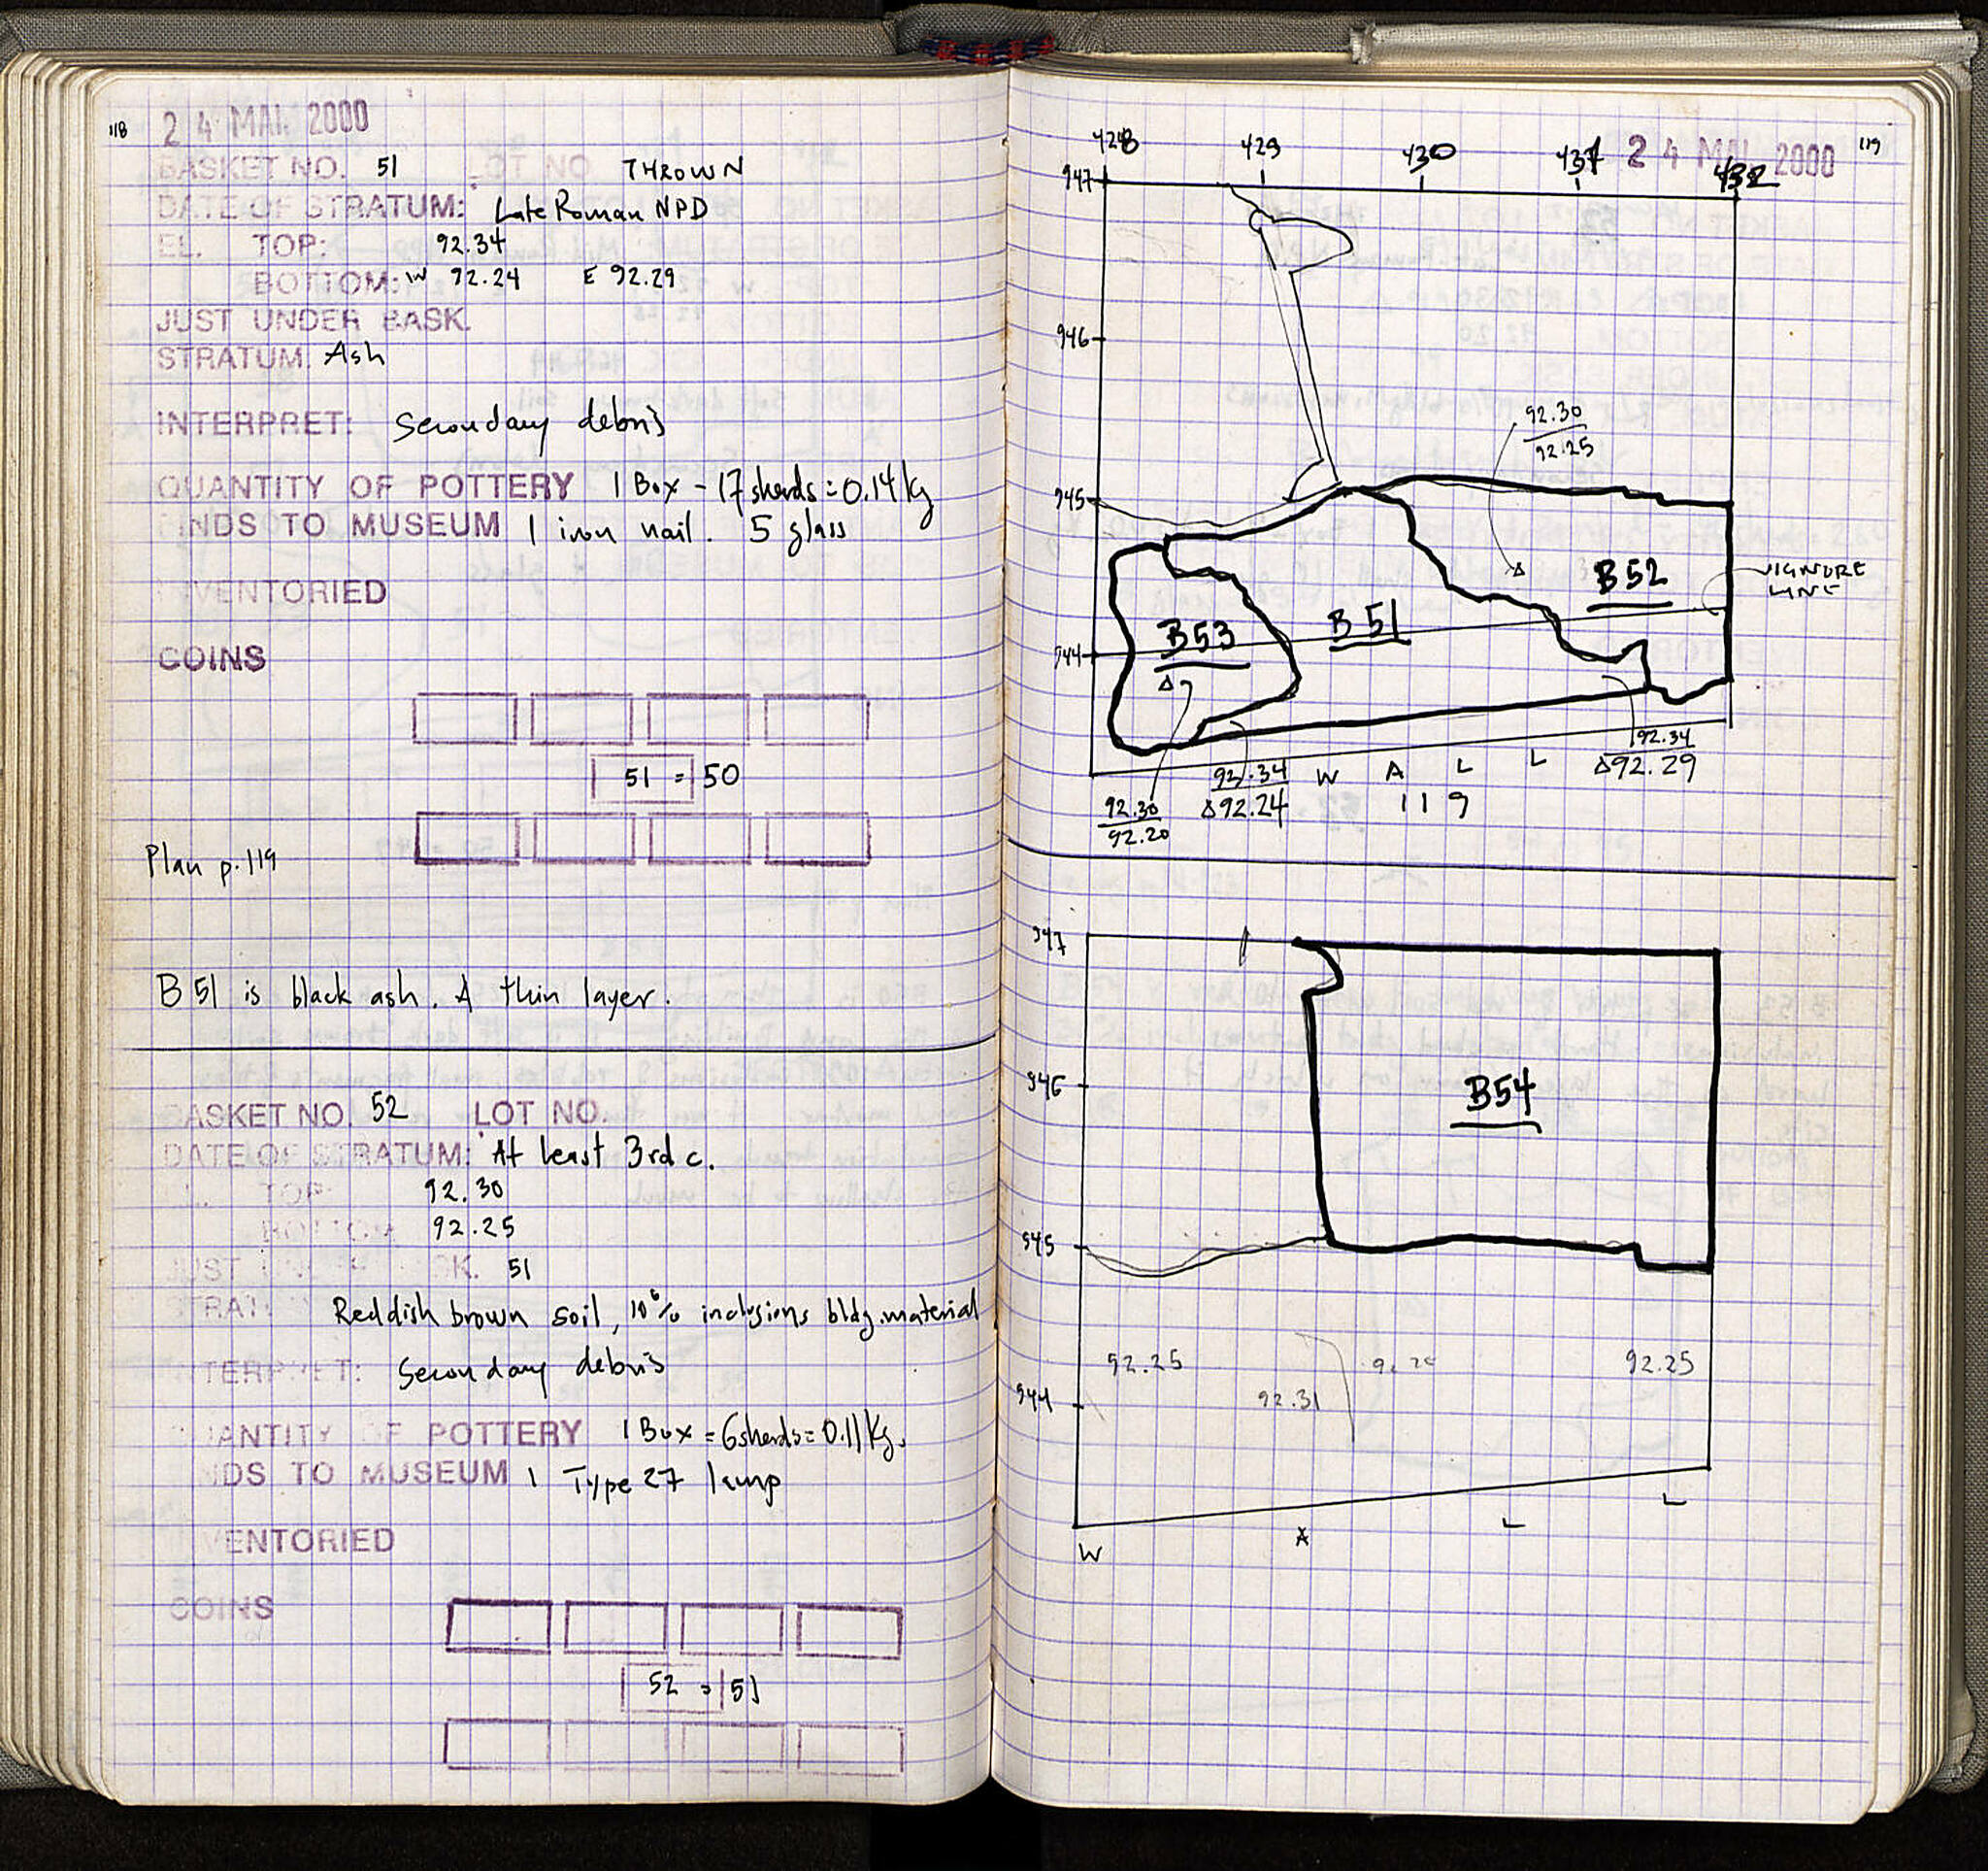 118
24 MAI 2000
BASKET NO. 51 LOT NO. THROWN
DATE OF STRATUM: Late Roman NPD
EL. TOP: 92.34
BOTTOM: W 92.24 E 92.29
JUST UNDER BASK.
STRATUM: Ash
INTERPRET: Secondary debris
QUANTITY OF POTTERY 1 Box - 17 sherds = 0.14 kg
FINDS TO MUSEUM 1 iron nail. 5 glass
INVENTORIED
COINS
51 = 50
Plan p.119
B 51 is black ash. A thin layer.
BASKET NO. 52 LOT NO.
DATE OF STRATUM: At least 3rd c.
TOP: 92.30
BOTTOM 92.25
JUST UNDER BASK. 51
STRAT Reddish brown soil, 10% inclusions bldg. material
INTERPRET: Secondary debris
QUANTITY OF POTTERY 1 Box = 6 sherds = 0.11 Kg.
FINDS TO MUSEUM 1 Type 27 lamp
INVENTORIED
COINS
52 = 51
119
24 MAI 2000
428 429 430 431 432
947
946
945
944
92.30
92.25
B 52
IGNORE
LINE
B 51
B 53
92.34
Δ92.29
92.34
Δ92.24
92.30
92.20
W A L L
119
947
946
945
944
B54
92.25
92.31
92.25
W A L L